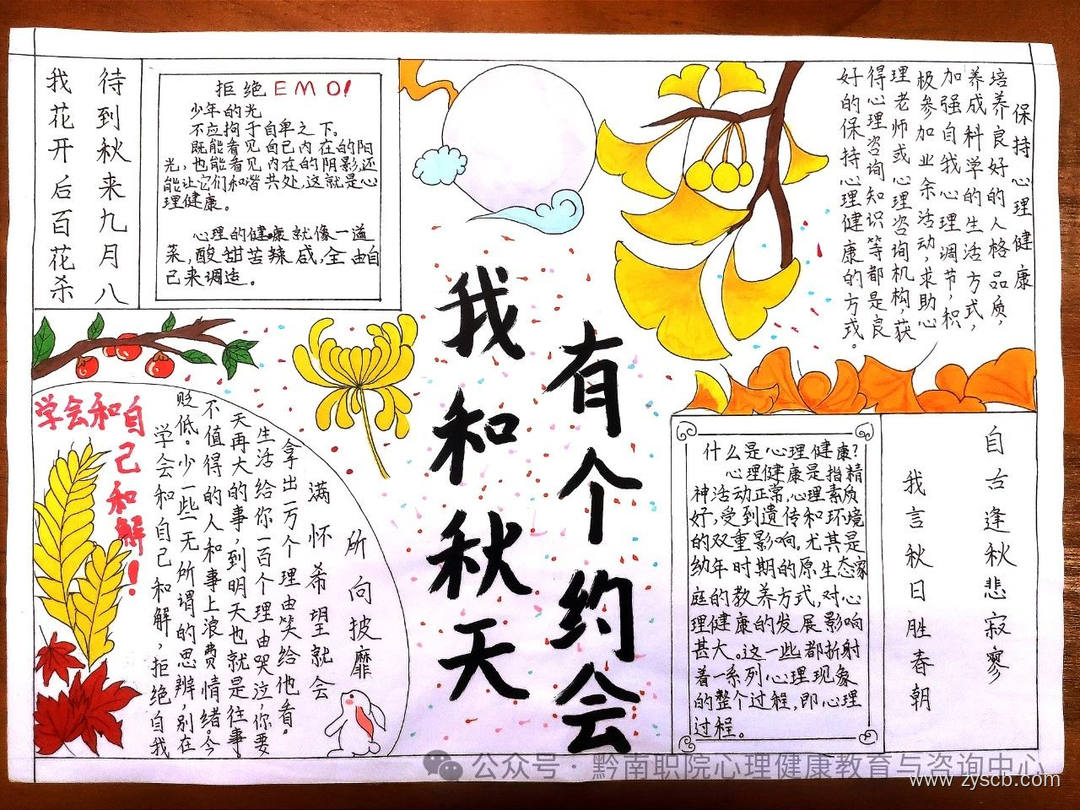 待到秋来九月八
我花开后百花杀
拒绝EMO!
少年的光
不应拘于自卑之下。
既能看见自己内在的阳
光,也能看见内在的阴影,还
能让它们和谐共处,这就是心
理健康。
心理的健康就像一道
菜,酸甜苦辣咸,全由自
己来调造。
我和秋天
有个约会
保持心理健康
培养良好的人格品质,
养成科学的生活方式,
加强自我心理调节,积
极参加业余活动,求助心
理老师或心理咨询机构,获
得心理咨询知识等都是良
好的保持心理健康的方式。
学会和自己和解!
所向披靡
满怀希望就会
拿出一万个理由笑给他看。
生活给你一百个理由哭泣,你要
天再大的事,到明天也就是往事,
不值得的人和事上浪费情绪。今
贬低。少一些无所谓的思辨,别在
学会和自己和解,拒绝自我
什么是心理健康?
心理健康是指精
神活动正常,心理素质
好,受到遗传和环境
的双重影响,尤其是
幼年时期的原生态家
庭的教养方式,对心
理健康的发展影响
甚大。这一些都折射
着一系列心理现象
的整个过程,即心理
过程。
自古逢秋悲寂寥
我言秋日胜春朝
公众号·黔南职院心理健康教育与咨询中心
www.zyscb.com